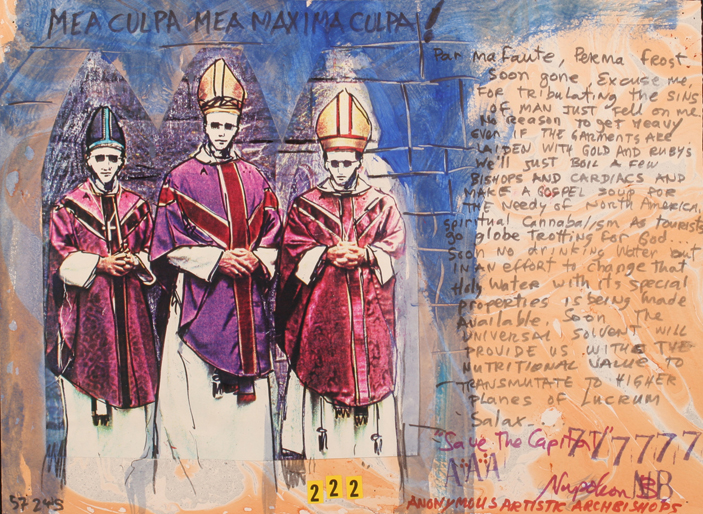 MEA CULPA MEA MAXIMA CULPA!
Par ma Faute, PERMA FROST.
Soon gone, Excuse me,
FOR TRIBULATING the SINS
OF MAN JUST Fell on me.
No Reason to get HEAVY
EVEN IF THE GARMENTS ARE
LAIDEN WITH GOLD AND RUBYS
We'll JUST BOIL A FEW
BISHOPS AND CARDIACS AND
MAKE A GOSPEL SOUP FOR
THE NEEDY OF NORTH AMERICA.
Spiritual Cannabalism As tourists
go globe Trotting For God...
Soon No drinking Water but
IN AN EFFORT to change that
Holy Water with its special
properties is being made
Available. Soon The
UNIVERSAL SOLVENT WILL
PROVIDE US WITH THE
NUTRITIONAL VALUE TO
TRANSMUTATE TO HIGHER
Planes of LUCRUM
Salax.
"Save The Capital" 777777
AAA
Napoleon
222
ANONYMOUS ARTISTIC ARCHBISHOPS